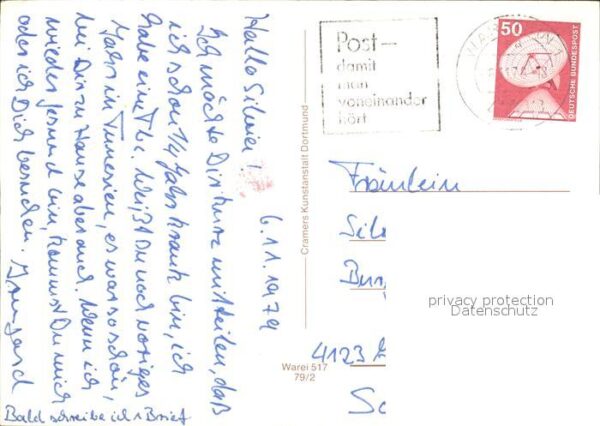 Hallo Silvia!
6.11.1979
Ich möchte Dir kurz mitteilen, daß
ich schon 1/4 Jahr krank bin, ich
habe eine Tbc. Weißt Du noch voriges
Jahr in Tunesien, es war so schön,
bei Dir zu Hause aber auch. Wenn ich
wieder gesund bin, kommst Du mich
oder ich Dich besuchen. Irmgard
Bald schreibe ich 1 Brief
Cramers Kunstanstalt Dortmund
Warei 517
79/2
Post–
damit
man
voneinander
hört
50
DEUTSCHE BUNDESPOST
Fräulein
Sil
4123
privacy protection
Datenschutz